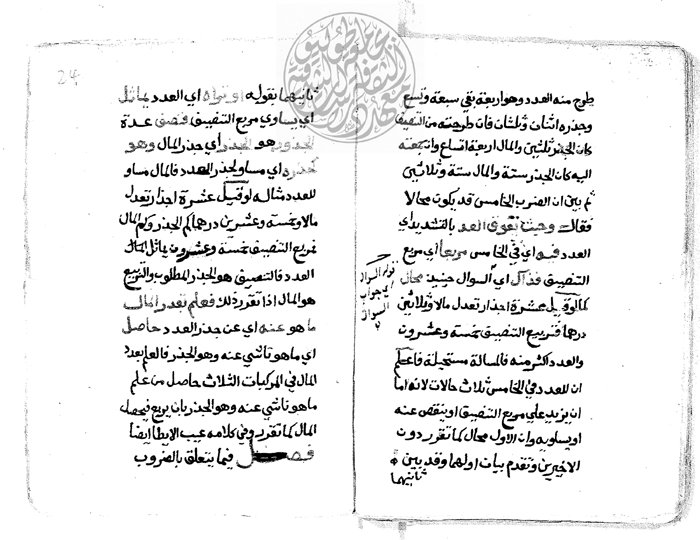 طرح منه العدد وهو اربعة بقي سبعة وتسع
وجذره اثنان وثلثان فان طرحته من التنصيف
كان الجذر ثلثين والمال اربعة اتساع وان جمعته
اليه كان الجذر ستة والمال ستة وثلاثين
ثم بين ان الضرب الخامس قد يكون محالا
فقال وحيث تفوق العد بالتشديد اي
العدد فيه اي في الخامس مربعا اي مربع
التنصيف فذاك اي السوال حينيذ محال
كما لو قيل عشرة اجذار تعدل مالا وثلاثين
درهما فتربيع التنصيف خمسة وعشرون
والعدد اكثر منه فالمسالة مستحيلة فاعلم
ان للعدد في الخامس ثلاث حالات لانه اما
ان يزيد على مربع التنصيف او ينقص عنه
او يساويه وان الاول محال كما تقرر دون
الاخيرين وتقدم بيان اولهما وقد بين
ثانيهما
السوال
جواب
السوال
24
ثانيهما بقوله او تراه اي العدد يماثل
اي يساوي مربع التنصيف فنصف عدة
الجذور هو الجذر اي جذر المال وهو
كجذره اي مساو لجذر العدد فالمال مساو
للعدد مثاله لو قيل عشرة اجذار تعدل
مالا وخمسة وعشرين درهما كم الجذر وكم المال
فربيع التنصيف خمسة وعشرون يماثل المال
العدد فالتنصيف هو الجذر المطلوب والتربيع
هو المال اذا تقرر ذلك فعلم قدر المال
ما هو عنه اي عن جذر العدد حاصل
اي ما هو ناشي عنه وهو الجذر فالعلم بعدد
المال في المركبات الثلاث حاصل من علم
ما هو ناشي عنه وهو الجذر بان يربع فيحصل
المال كما تقرر وفي كلامه عيب الايطا ايضا
فصل فيما يتعلق بالضروب